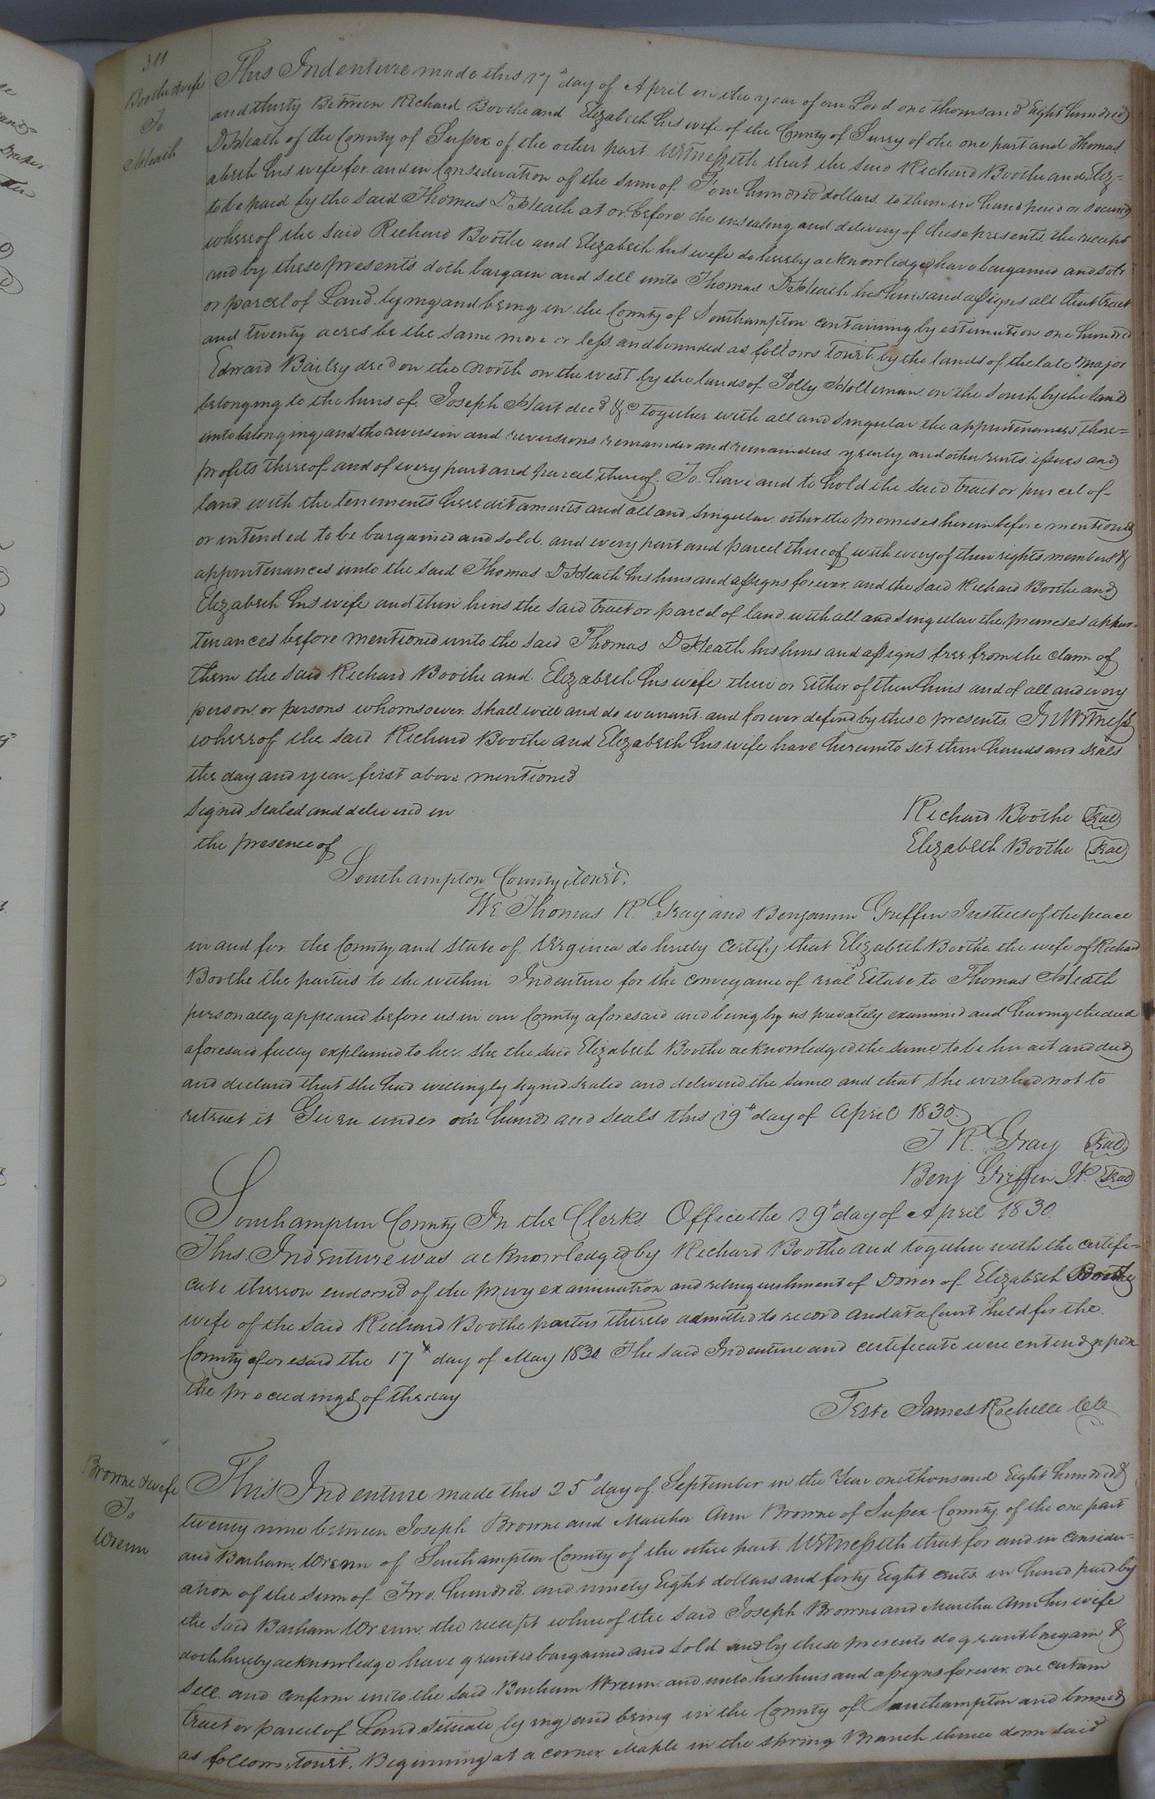 311
Boothe & wife
To
Heath
This Indenture made this 17th day of April in the year of our Lord one thousand Eight hundred
and thirty Between Richard Boothe and Elizabeth his wife of the County of Surry of the one part and Thomas
D Heath of the County of Sussex of the other part Witnesseth that the said Richard Boothe and Eliz=
abeth his wife for and in Consideration of the sum of Four hundred dollars to them in hand paid or secured
to be paid by the said Thomas D Heath at or before the ensealing and delivery of these presents the receipt
whereof the said Richard Boothe and Elizabeth his wife do hereby acknowledge have bargained and sold
and by these presents doth bargain and sell unto Thomas D Heath his heirs and assigns all that tract
or parcel of Land lying and being in the County of Southampton containing by estimation one hundred
and twenty acres be the same more or less and bounded as follows towit, by the lands of the late Major
Edward Bailey decd on the North on the west by the lands of Polly Holleman on the South by the land
belonging to the heirs of Joseph Hart decd &c together with all and singular the appurtenances there=
unto belonging and the reversion and reversions remainder and remainders yearly and other rents issues and
profits thereof and of every part and parcel thereof. To have and to hold the said tract or parcel of
land with the tenements hereditaments and all and singular other the premises herein before mentioned
or intended to be bargained and sold, and every part and parcel thereof with every of their rights members &
appurtenances unto the said Thomas D Heath his heirs and assigns forever and the said Richard Boothe and
Elizabeth his wife and their heirs the said tract or parcel of land with all and singular the premises appur=
tenances before mentioned unto the said Thomas D Heath his heirs and assigns free from the claim of
them the said Richard Boothe and Elizabeth his wife their or Either of their heirs and of all and every
person or persons whomsoever shall will and do warrant and forever defend by these presents In Witness
whereof the said Richard Boothe and Elizabeth his wife have hereunto set their hands and seals
the day and year first above mentioned
Signed Sealed and delivered in
the presence of
Richard Boothe Seal
Elizabeth Boothe Seal
Southampton County, towit,
We Thomas R. Gray and Benjamin Griffin Justices of the peace
in and for the County and State of Virginia do hereby Certify that Elizabeth Boothe the wife of Richard
Boothe the parties to the within Indenture for the conveyance of real Estate to Thomas Heath
personally appeared before us in our County aforesaid and being by us privately examined and having the deed
aforesaid fully explained to her she the said Elizabeth Boothe acknowledged the same to be her act and deed
and declared that she had willingly signed sealed and delivered the same and that she wished not to
retract it Given under our hands and seals this 19th day of April 1830
T R. Gray Seal
Benj Griffin JP. Seal
Southampton County In the Clerks Office the 19th day of April 1830
This Indenture was acknowledged by Richard Boothe and together with the certifi=
cate thereon endorsed of the privy examination and relinquishment of Dower of Elizabeth Boothe
wife of the said Richard Boothe parties thereto admitted to record and at a Court held for the
County aforesaid the 17th day of May 1830 The said Indenture and certificate were entered upon
the proceedings of the day
Teste James Rochelle Clk
Browne & wife
To
Wrenn
This Indenture made this 25th day of September in the Year one thousand Eight hundred &
twenty nine between Joseph Browne and Martha Ann Browne of Sussex County of the one part
and Barham Wrenn of Southampton County of the other part. Witnesseth that for and in consider=
ation of the sum of Two hundred and ninety Eight dollars and forty Eight cents in hand paid by
the said Barham Wrenn, the receipt whereof the said Joseph Browne and Martha Ann his wife
doth hereby acknowledge have granted bargained and sold and by these presents do grant bargain &
Sell and confirm unto the said Barham Wrenn and unto his heirs and assigns forever one certain
tract or parcel of Land situate lying and being in the County of Southampton and bound
as follows, towit, Beginning at a corner Maple in the Spring Branch thence down said